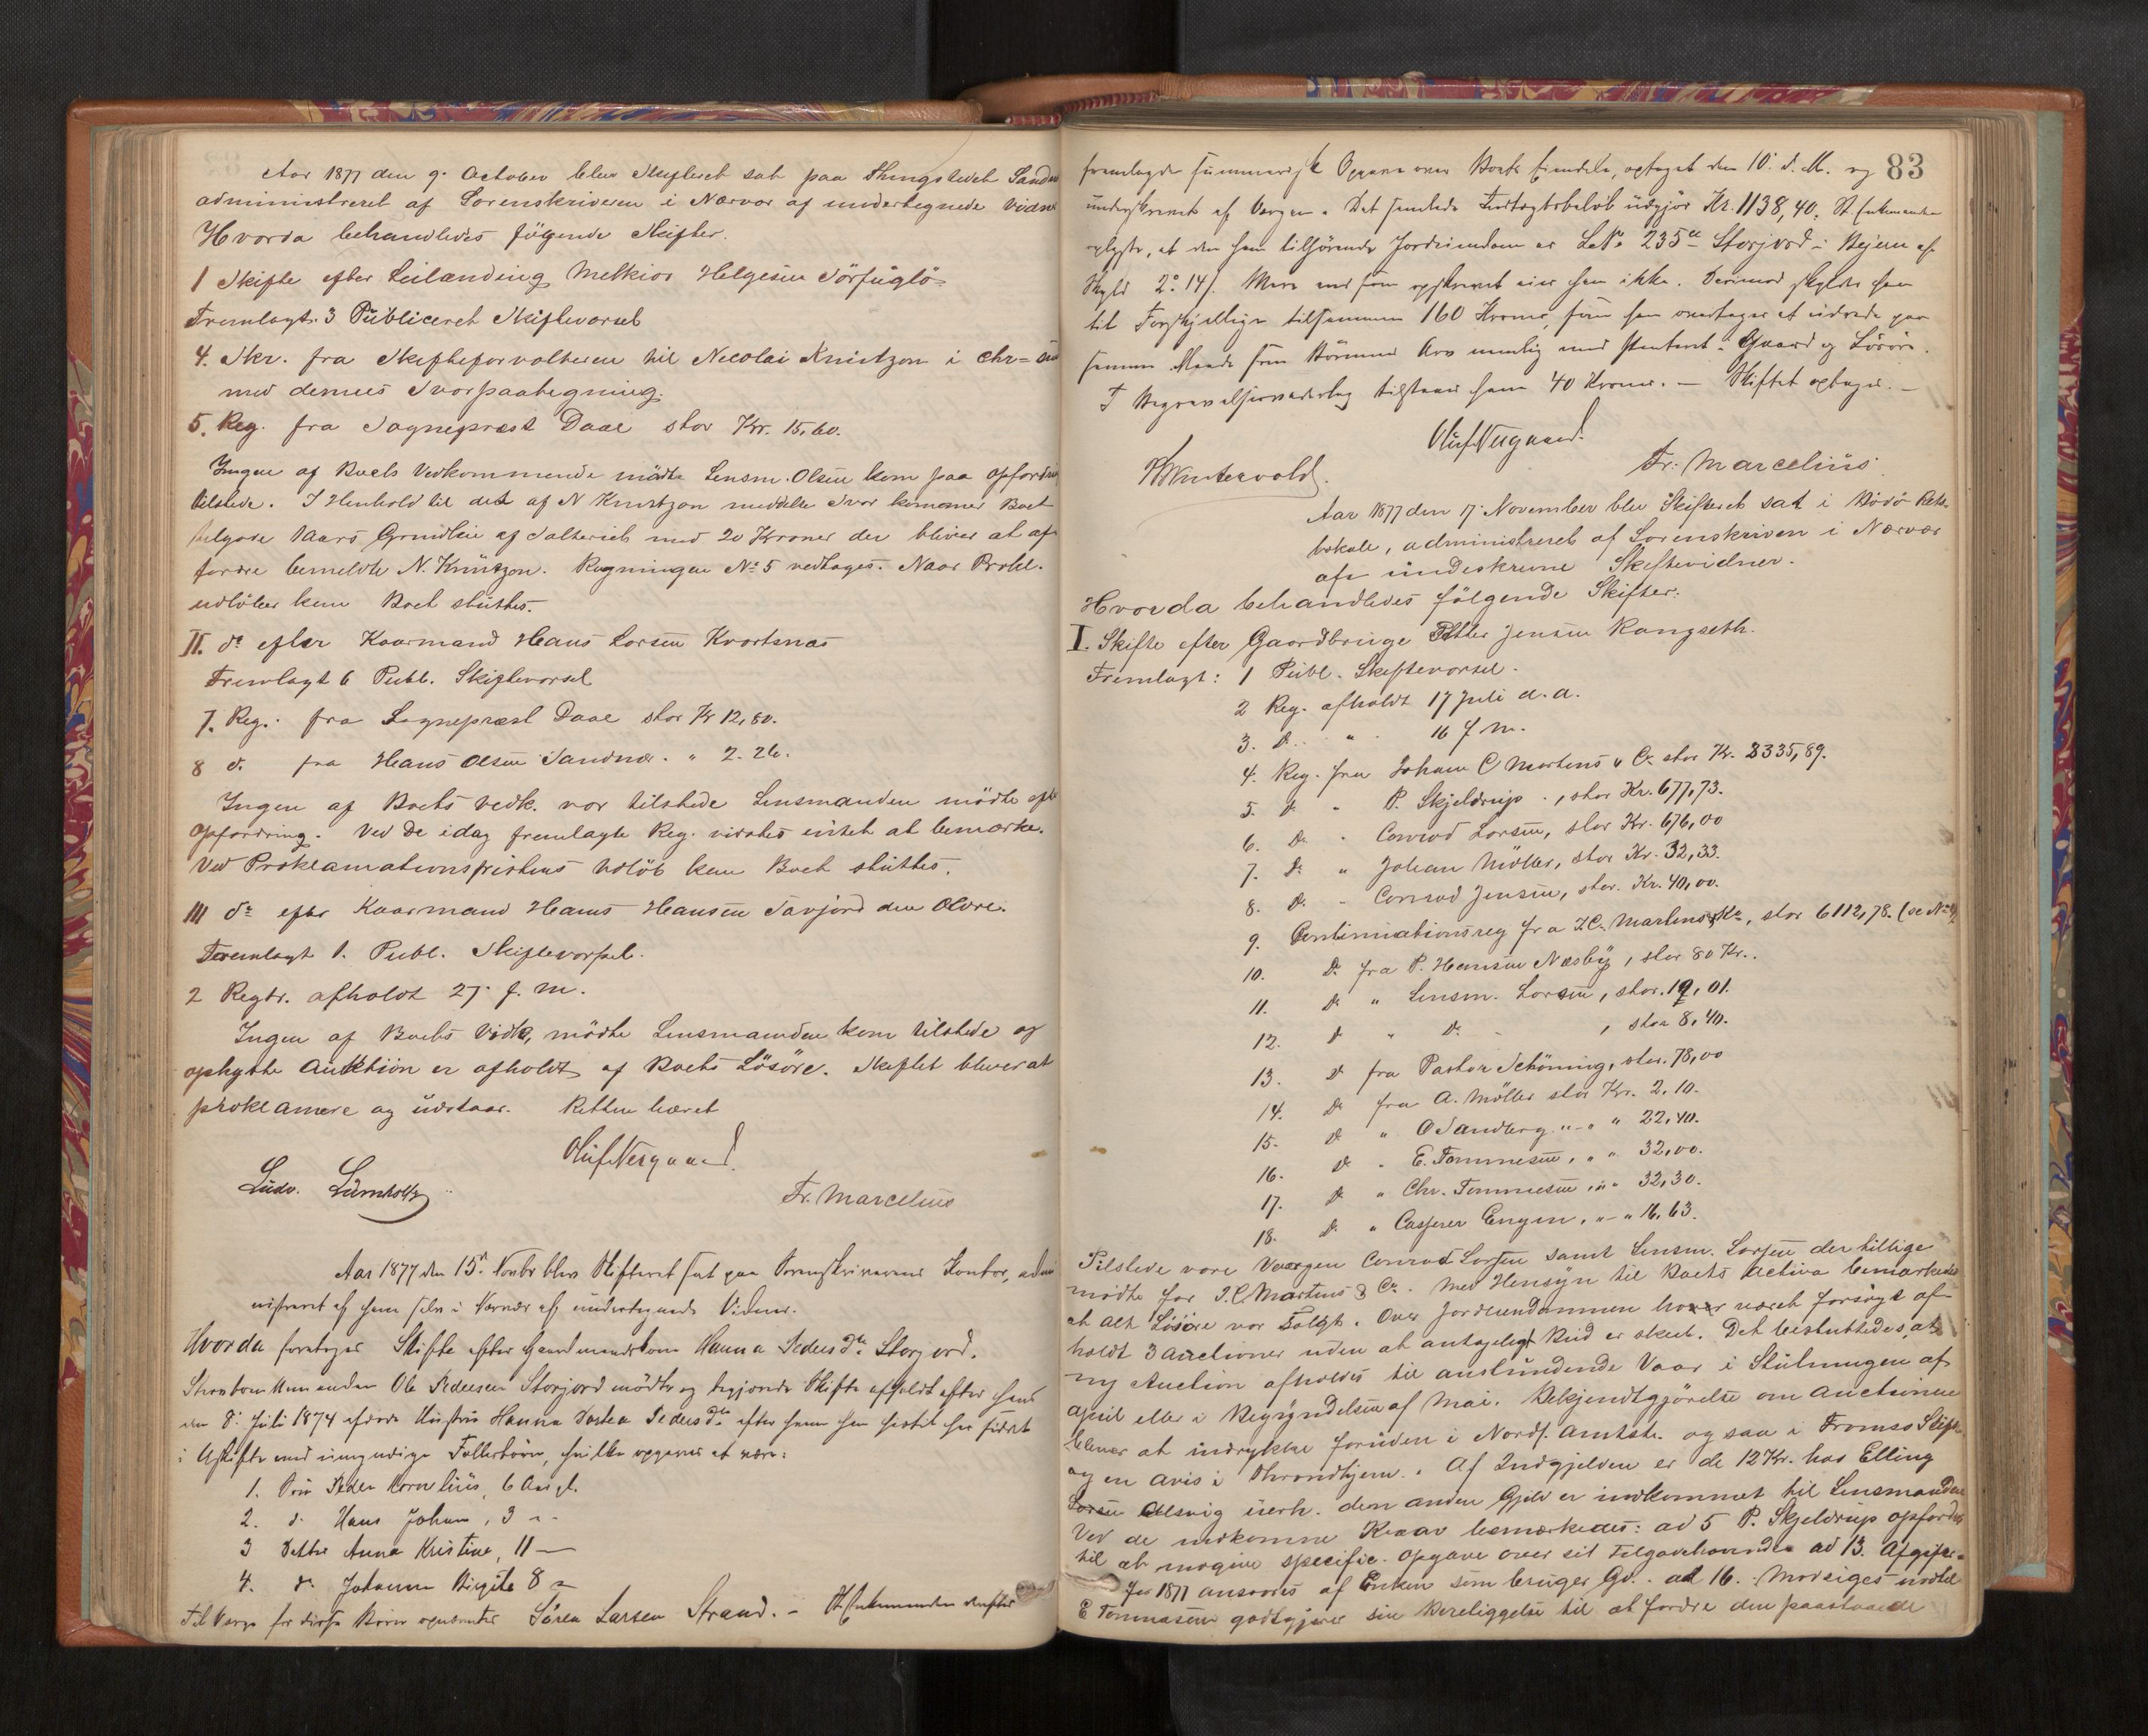 Aar 1877 den 9. October blev Skifteret sat paa Thingstedet Sand
administreret af Sorenskriveren i Nærvær af undertegnede Vidne
Hvorda behandledes følgende Skifter.
1 Skifte efter Leilænding Melkior Helgesen Sörfuglö-
Fremlagt. 3 Publiceret Skiftevarsel
4. Skr. fra Skifteforvalteren til Nicolai Knutzon i Chr=
med dennes Svarpaategning.
5. Reg. fra Sognepræst Daae stor Kr. 15,60.
Ingen af Boets Vedkommende mödte Lensm. Olsen kom paa Opfordr
tilstede. I Henhold til det af N Knutzon meddelte Svar kommer Boet
1 Aars Grundleie af med 20 Kroner der bliver at af-
fordre bemeldte N. Knutzon. Regningen No 5 vedtages. Naar Prokl.
udlöber kan Boet sluttes.
II. do efter Kaarmand Hans Larsen Kvartsnæs
Fremlagt 6 Publ. Skiftevarsel
7. Reg. fra Sognepræst Daae stor Kr 12,80.
8 d. fra Hans Olsen Sandnæs. " 2. 26.
Ingen af Boets Vedk. var tilstede Lensmanden mödte eft
Opfordring. Ved de idag fremlagte Reg. vidstes intet at bemærke.
Ved Proklamationsfristens Udlöb kan Boet sluttes.
III do efter Kaarmand Hans Hansen Savjord den Ældre.
Fremlagt 1. Publ. Skiftevarsel.
2 Regtr. afholdt 27. f. M.
Ingen af Boets Vedk. mödte Lensmanden kom tilstede og
oplyste Auktion er afholdt af Boets Lösöre. Skiftet bliver at
proklamere og udstaar. Retten hævet
Oluf Nergaard.
Ludv. Lumholtz
Fr. Marcelius
Aar 1877 den 15de Novbr blev Skifteret sat paa Sorenskriverens Kontor, admi
nistreret af ham selv i Nærvær af undertegnede Vidner.
Hvorda foretoges Skifte efter Gaardmandskone Hanna Pedersdtr Storjord.
Ole Pedersen Storjord mödte og begjærede Skifte afholdt efter hans
den 8. Juli 1874 afdöde Hustru Hanna Pedersdtr efter hvem han hertil har siddet
i Uskifte med umyndige Fællesbörn, hvilke opgaves at være:
1. Sön Peder Kornelius, 6 Aar gl.
2. d. Hans Johan, 3 " -
3 Datter Anna Kristine, 11 —
4. do Johanna Birgite 8 "
Til Værge for disse Börn opnævntes Sören Larsen Strand. – Enkemanden derefter
83
fremlagde summarisk Opgave over Boets Eiendele, optaget den 10. d. M. og
underskrevet af Værgen. Det samlede Indtægtsbelöb udgjör Kr. 1138,40. Enkemanden
oplyste, at den ham tilhörende Jordeiendom er LNo 235 a Storjord i Bejern af
Skyld 2. 14 s. Mere end som opskrevet eier han ikke. Derimod skylder han
til Forskjellige tilsammen 160 Kroner, som han overtager at udrede paa
samme Maade som Börnenes Arv nemlig med Pant i Gaard og Lösöre.
I Begravelsesvederlag tilstaaes ham 40 Kroner. — Skiftet optages. —
Oluf Nergaard.
Fr. Marcelius
Aar 1877 den 17. November blev Skifteret sat i Bodö Rets-
lokale, administreret af Sorenskriveren i Nærvær
af underskrevne Skiftevidner.
Hvorda behandledes fölgende Skifter:
I. Skifte efter Gaardbruge Petter Jensen Kangseth.
Fremlagt: 1 Publ. Skiftevarsel.
2 Reg. afholdt 17 Juli d. a.
3. Do " 16 f m.
4. Reg. fra Johan C Martens & Co stor Kr. 2335,89.
5. do " P. Skjeldrup, stor Kr. 677,73.
6. Do " Conrad Larsen, stor Kr. 676,00
7. Do " Johan Möller, stor Kr. 32,33.
8. Do " Conrad Jensen, stor. Kr. 40,00.
9. Continuationsreg fra J.C. Martens & Ko, stor 6112,78. (se No 4)
10. Do fra P. Hansen Næsby, stor 80 Kr.
11. Do " Lensm. Larsen, stor. 19,01.
12. Do " Do - , stor 8,40.
13. Do fra Pastor Schöning, stor. 78,00
14. Do fra A. Möller stor Kr. 2.10.
15. Do " O Sandberg " - " 22,40.
16. Do " E. Tommesen, " " 32,00.
17. Do " Chr. Tommesen " " 32,30.
18. Do " Casperer Engen, " - " 16,63.
Tilstede vare Værgen Conrad Larsen samt Lensm. Larsen der tillige
mödte for J.C. Martens & Co. Med Hensyn til Boets Activa bemærkedes
at alt Lösöre var solgt. Over Jordeiendommen har været forsögt af-
holdt 3 Auctioner uden at antageligt Bud er skeet. Det besluttedes, at
ny Auction afholdes til anstundende Vaar i Slutningen af
April eller i Begyndelsen af Mai. Bekjendtgjörelse om Auctionen
bliver at indrykke foruden i Nordl. Amtstd. ogsaa i Tromsö Stift
og en Avis i Throndhjem. Af Indgjelden er de 12 Kr. hos Elling
Larsen Alsvig uerh. den anden Gjeld er indkommet til Lensmanden
Ved de indkomne Krav bemærkedes: ad 5 P. Skjeldrup opfordres
til at indgive specific. Opgave over sit Tilgodehavende ad 13. Afgifte-
for 1877 ansvares af Enken som bruger Gd. ad 16. Modsiges indtil
E Tommesen godtgjör sin Bereliggelse til at fordre den paastaaede